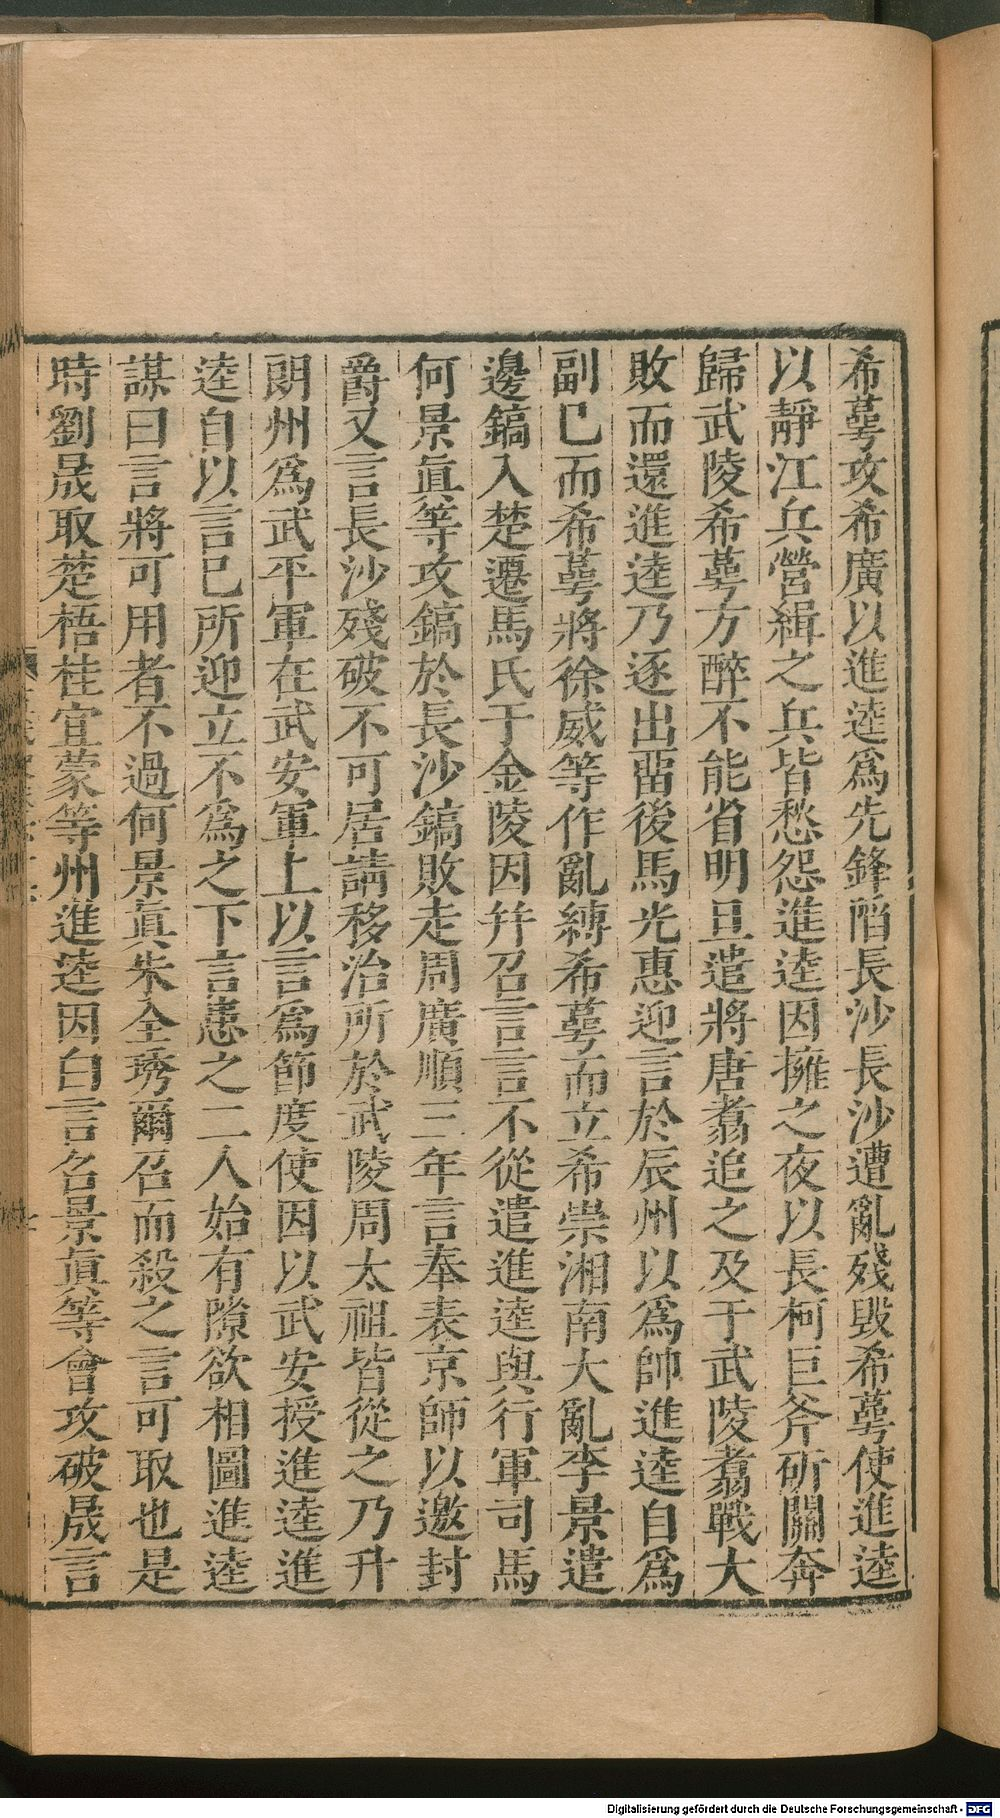 希蕚攻希廣以進逵爲先鋒陷長沙長沙遭亂殘毀希蕚使進逵
以靜江兵營緝之兵皆愁怨進逵因擁之夜以長柯巨斧斫關奔
歸武陵希蕚方醉不能省明旦遣將唐翥追之及于武陵翥戰大
敗而還進逵乃逐出畱後馬光惠迎言於辰州以爲帥進逵自爲
副已而希蕚將徐威等作亂縛希蕚而立希崇湘南大亂李景遣
邊鎬入楚遷馬氏于金陵因幷召言言不從遣進逵與行軍司馬
何景眞等攻鎬於長沙鎬敗走周廣順三年言奉表京師以邀封
爵又言長沙殘破不可居請移治所於武陵周太祖皆從之乃升
朗州爲武平軍在武安軍上以言爲節度使因以武安授進逵進
逵自以言已所迎立不爲之下言患之二人始有隙欲相圖進逵
謀曰言將可用者不過何景眞朱全琇爾召而殺之言可取也是
時劉晟取楚梧桂宜蒙等州進逵因白言召景眞等會攻破晟言
Digitalisierung gefördert durch die Deutsche Forschungsgemeinschaft - DFG